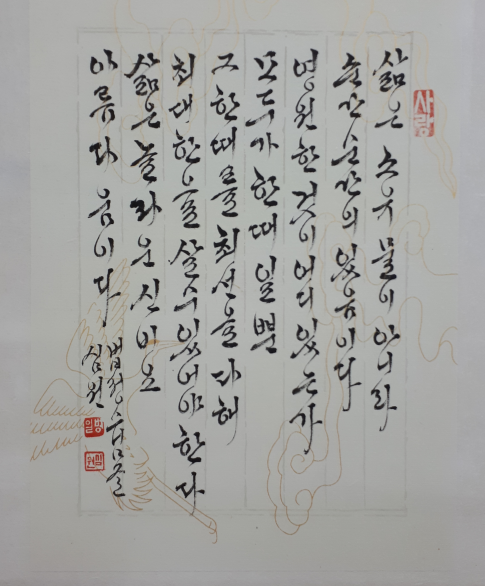 사랑
삶은 소유물이 아니라
순간순간의 있음이다
영원한 것이 어디 있는가
모두가 한때일 뿐
그 한때를 최선을 다해
최대한으로 살 수 있어야 한다
삶은 놀라운 신비요
아름다움이다
법정스님글
심원
심원